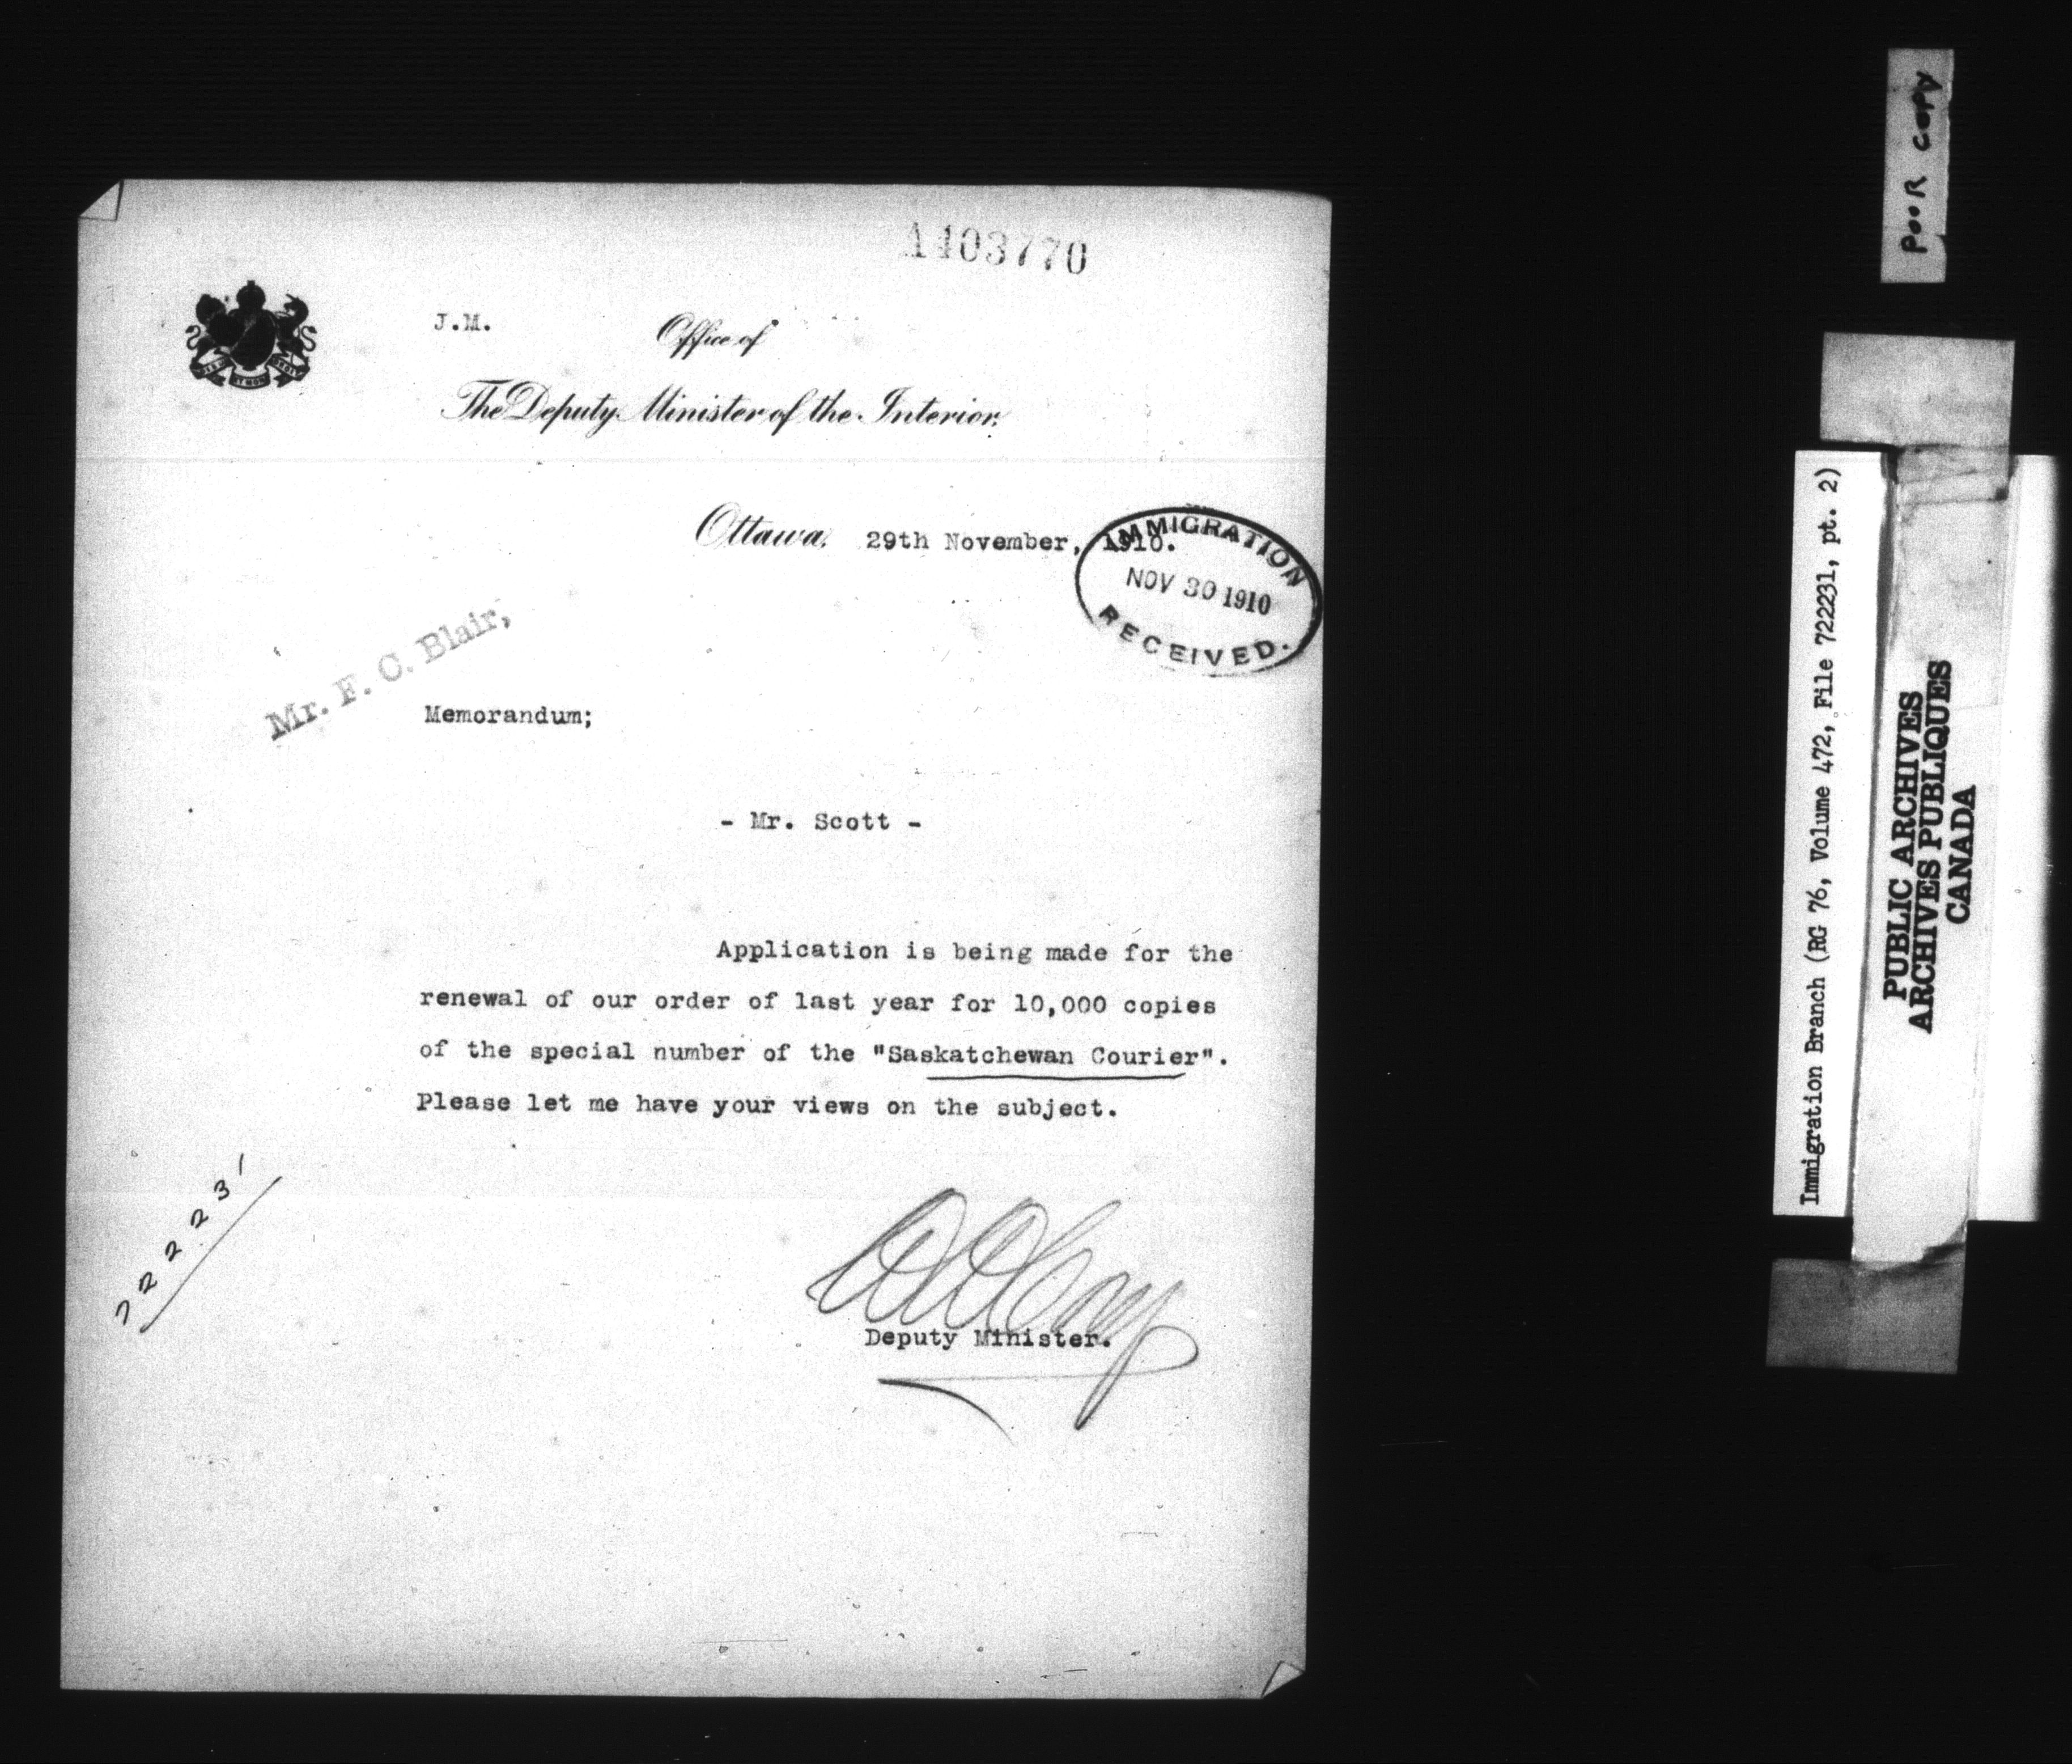 1403770
J.M.
Office of
The Deputy Minister of the Interior.
Ottawa, 29th November, 1910.
IMMIGRATION
NOV 30 1910
RECEIVED.
Mr. F. C. Blair,
Memorandum;
- Mr. Scott -
Application is being made for the
renewal of our order of last year for 10,000 copies
of the special number of the "Saskatchewan Courier".
Please let me have your views on the subject.
722231
Deputy Minister.
POOR COPY
Immigration Branch (RG 76, Volume 472, File 722231, pt. 2)
PUBLIC ARCHIVES
ARCHIVES PUBLIQUES
CANADA